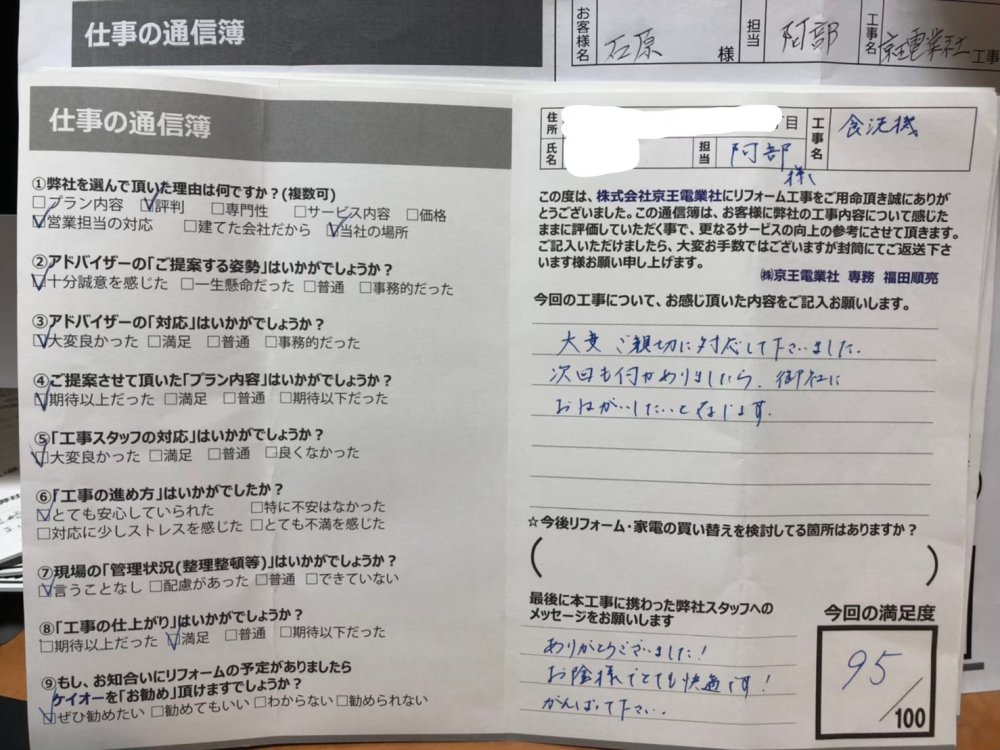 仕事の通信簿
お客様名 石原 様 担当 阿部 工事名 京王電業社 工事
仕事の通信簿
①弊社を選んで頂いた理由は何ですか？(複数可)
□プラン内容 ☑評判 □専門性 □サービス内容 □価格
☑営業担当の対応 □建てた会社だから ☑当社の場所
②アドバイザーの「ご提案する姿勢」はいかがでしょうか？
☑十分誠意を感じた □一生懸命だった □普通 □事務的だった
③アドバイザーの「対応」はいかがでしょうか？
☑大変良かった □満足 □普通 □事務的だった
④ご提案させて頂いた「プラン内容」はいかがでしょうか？
☑期待以上だった □満足 □普通 □期待以下だった
⑤「工事スタッフの対応」はいかがでしょうか？
☑大変良かった □満足 □普通 □良くなかった
⑥「工事の進め方」はいかがでしたか？
☑とても安心していられた □特に不安はなかった
□対応に少しストレスを感じた □とても不満を感じた
⑦現場の「管理状況(整理整頓等)」はいかがでしょうか？
☑言うことなし □配慮があった □普通 □できていない
⑧「工事の仕上がり」はいかがでしょうか？
□期待以上だった ☑満足 □普通 □期待以下だった
⑨もし、お知合いにリフォームの予定がありましたら
ケイオーを「お勧め」頂けますでしょうか？
☑ぜひ勧めたい □勧めてもいい □わからない □勧められない
住所 目 工事名 食洗機
氏名 担当 阿部様
この度は、株式会社京王電業社にリフォーム工事をご用命頂き誠にありが
とうございました。この通信簿は、お客様に弊社の工事内容について感じた
ままに評価していただく事で、更なるサービスの向上の参考にさせて頂きます。
ご記入いただけましたら、大変お手数ではございますが封筒にてご返送下さ
います様お願い申し上げます。
㈱京王電業社 専務 福田順亮
今回の工事について、お感じ頂いた内容をご記入お願いします。
大変ご親切に対応して下さいました。
次回も何かありましたら、御社に
おねがいしたいと存じます。
☆今後リフォーム・家電の買い替えを検討してる箇所はありますか？
( )
最後に本工事に携わった弊社スタッフへの
メッセージをお願いします
ありがとうございました！
お陰様でとても快適です！
がんばって下さい。
今回の満足度
95/100